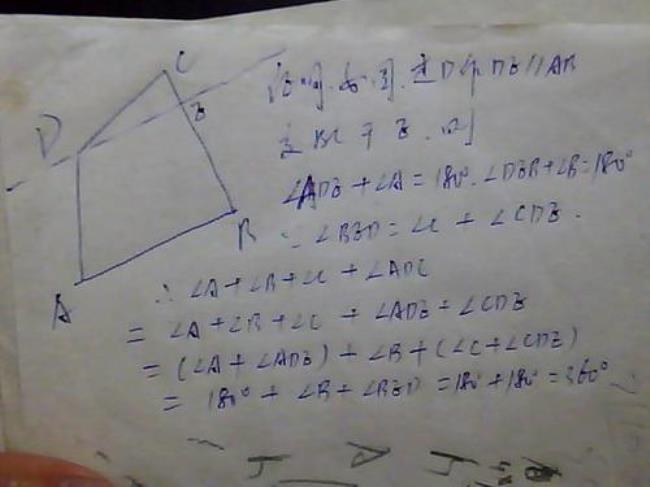 C
D
E
B
A
证明:如图,过D作DE∥AB
交BC于E,则
∠ADE+∠A=180°.∠DEB+∠B=180°
∵∠BED=∠C+∠CDE.
∴∠A+∠B+∠C+∠ADC
=∠A+∠B+∠C+∠ADE+∠CDE
=(∠A+∠ADE)+∠B+(∠C+∠CDE)
=180°+∠B+∠BED=180°+180°=360°